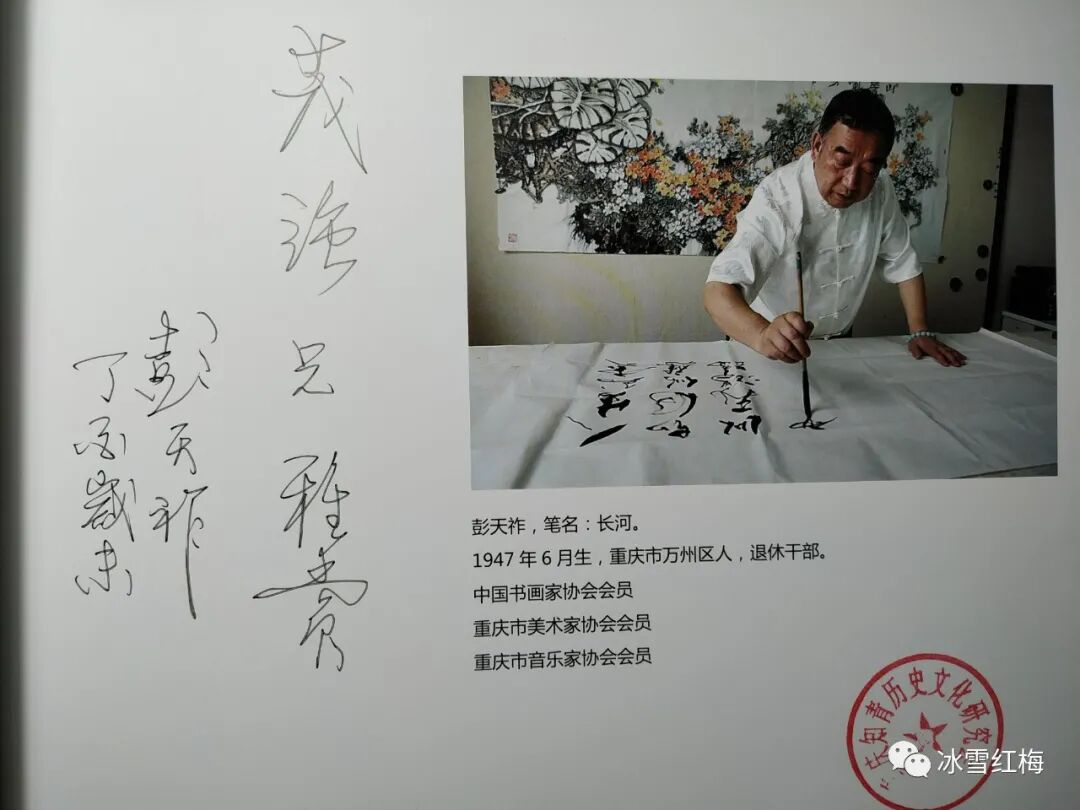 茂强兄雅赏
彭天祚
丁酉岁末
彭天祚，笔名：长河。
1947年6月生，重庆市万州区人，退休干部。
中国书画家协会会员
重庆市美术家协会会员
重庆市音乐家协会会员
知青历史文化研究
冰雪红梅